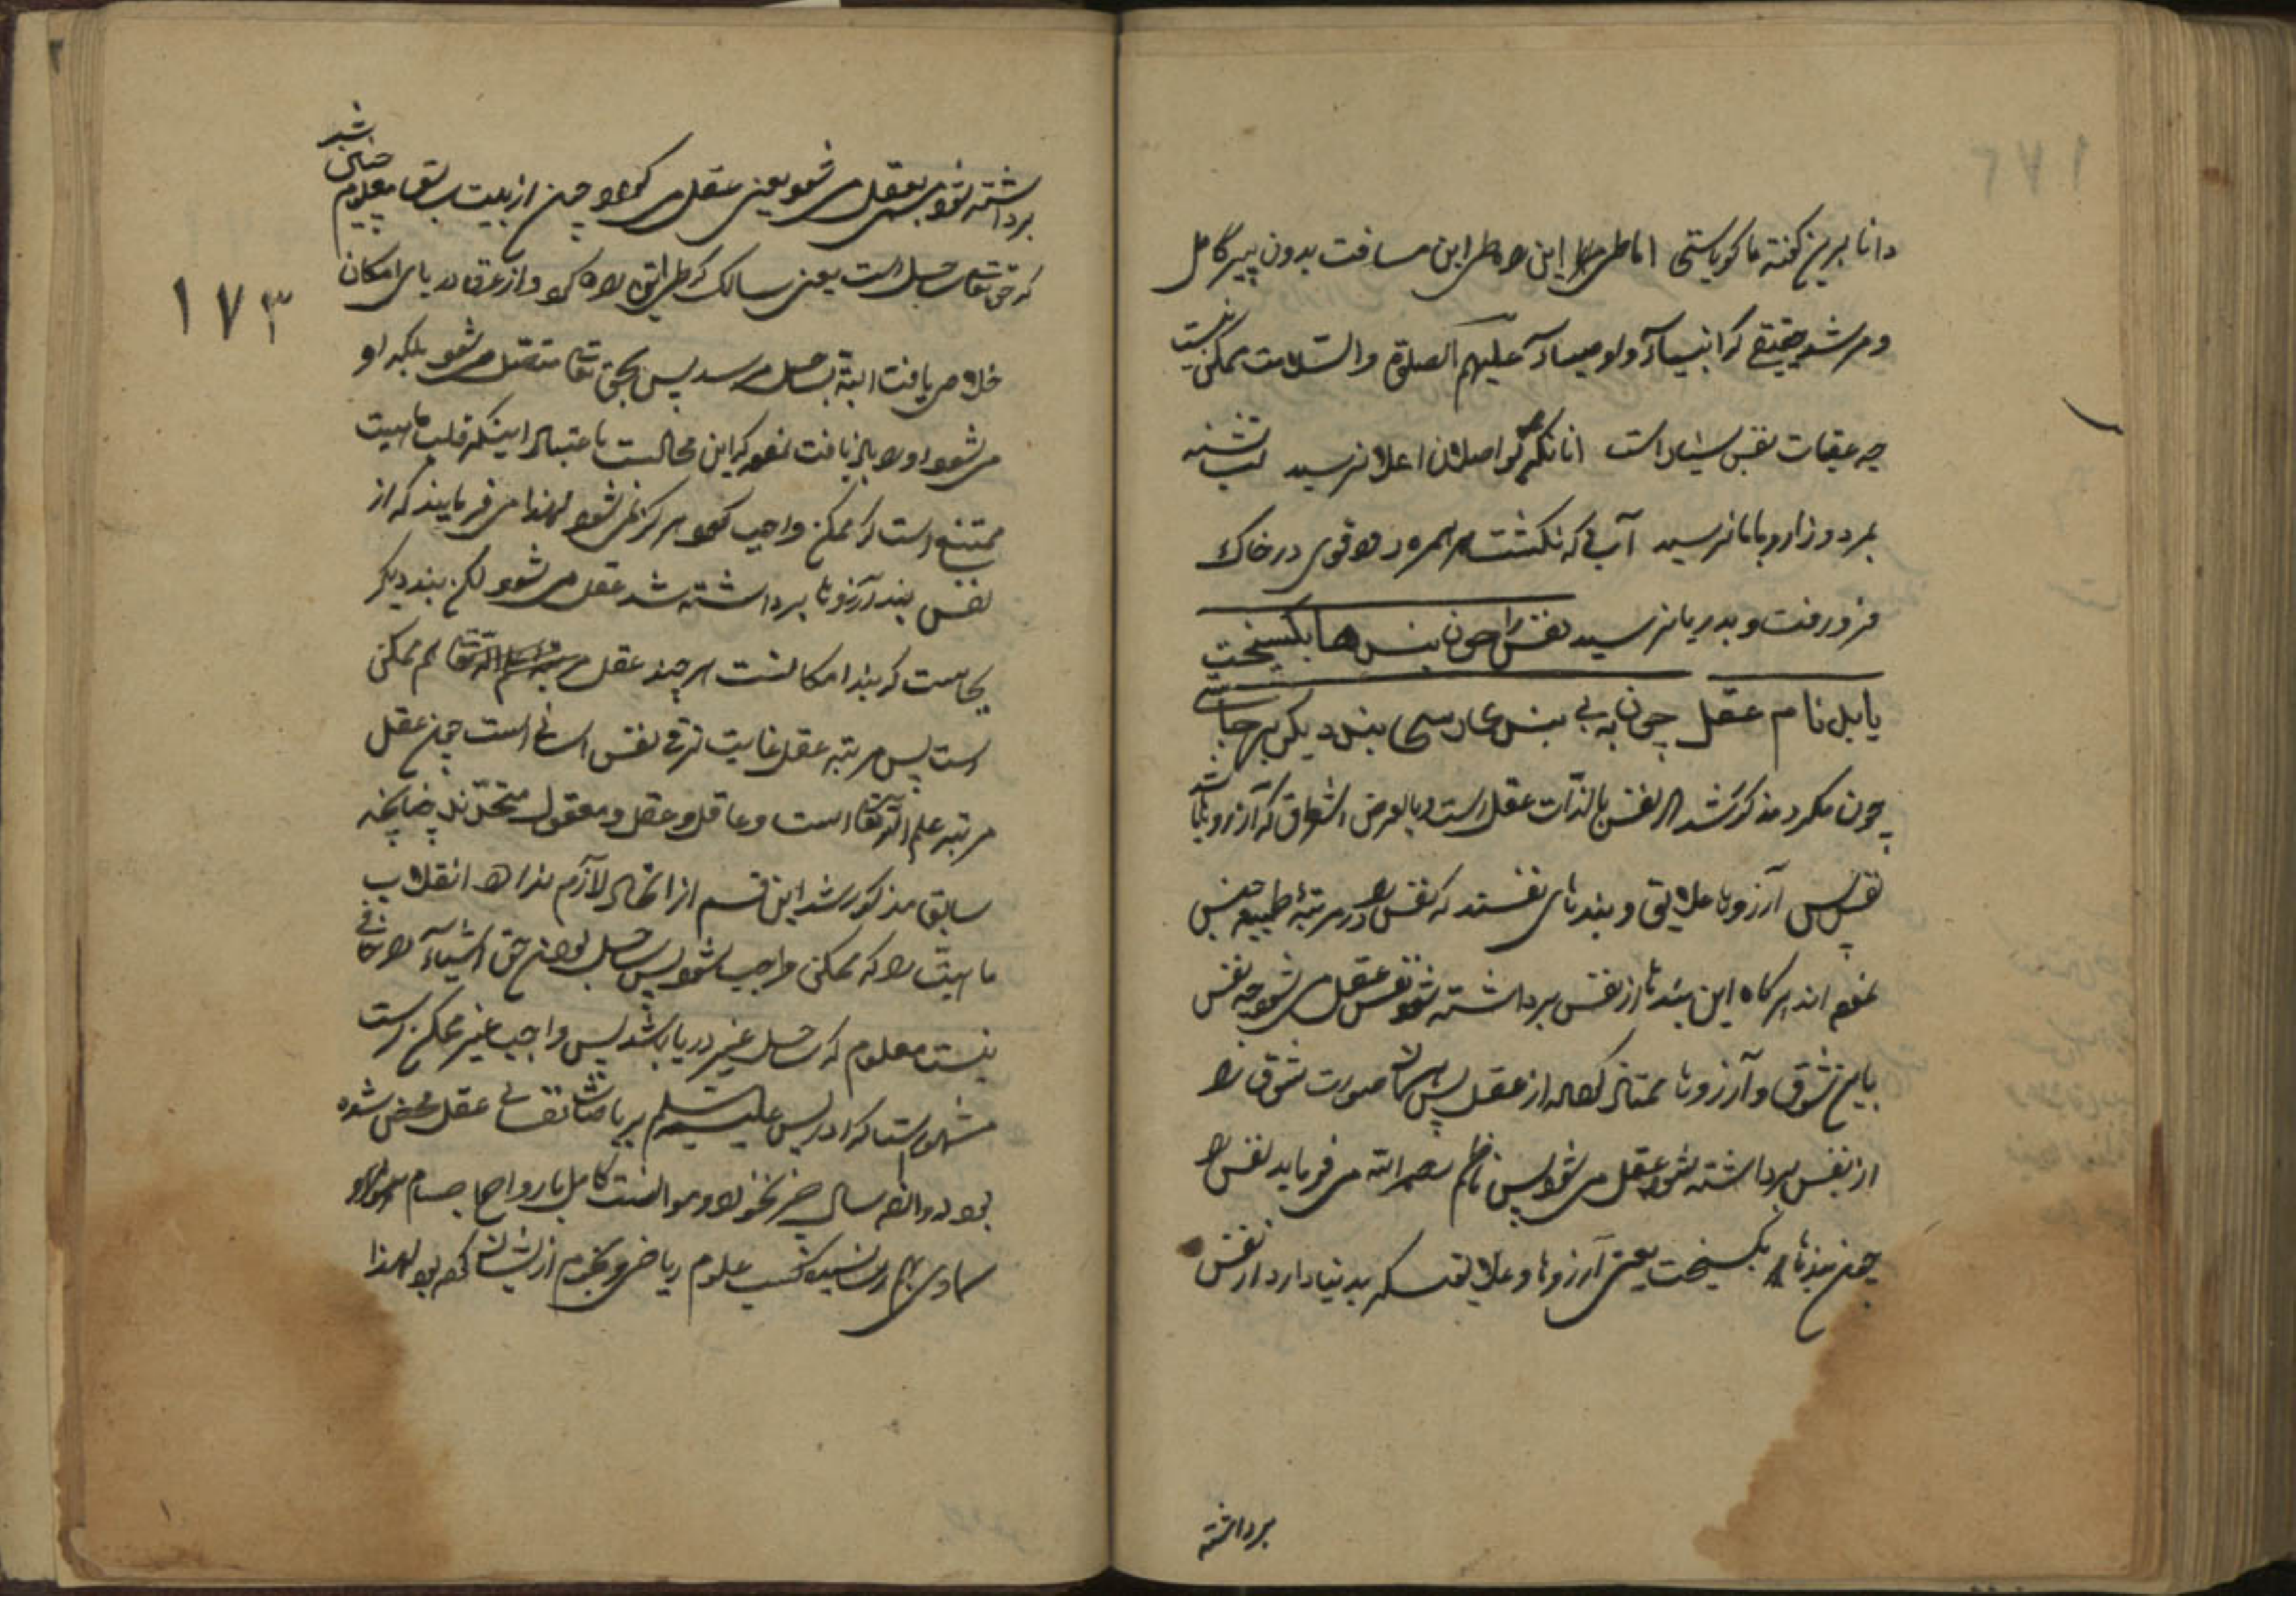 دانا برین گفته ما گویاستی اما طی این راه و طی این مسافت بدون پیر کامل
و مرشد حقیقی که انبیاء و اوصیاء علیهم الصلوة والسلامند ممکن نیست
چه عقبات نفس بسیار است انانکه اصلان اعلا نرسید لب تشنه
بمرد و زار و بامانرسید آبی که نگشت همره رود قوی در خاک
فرو رفت و بدریا نرسید نفس را چون بندها بگسیخت
یابد نام عقل چون به بی بندی رسی بند دیگر برجاستی
چون مکرر مذکور شد که نفس بالذات عقل است و بالعرض اشواق که آرزوها باشد
نفس پس آرزوها علایق و بندهای نفسند که نفس را در مرتبهٔ طبیعه حبس
نموده اند هرگاه این بندها از نفس برداشته شود نفس عقل می شود چه نفس
باین شوق و آرزوها ممتاز بود از عقل پس هرگاه صورت شوق را
از نفس برداشته شود عقل می شود پس ناظم رحمه الله می فرماید نفس را
چون بندها بگسیخت یعنی آرزوها و علایقی که بدنیا دارد از نفس
برداشته
۱۷۳
برداشته شود عقل می شود یعنی عقل می گردد چون از بیت سابق معلوم چنان شد
که حق تعالی ساحل است یعنی سالک که طریق راه کرد و از غرقاب دریای امکان
خلاص یافت البته بساحل می رسد پس بحق تعالی متصل می شود بلکه او
می شود او را باز یافت نمود که این محالست باعتبار اینکه قلب ماهیت
ممتنع است که ممکن واجب گردد هرگز نمی شود لهذا می فرمایند که از
نفس بند آرزوها برداشته شد عقل می شود لکن بند دیگر
بجاست که بند امکانست هر چند عقل هم ممکن
است پس مرتبه عقل غایت ترقی نفس انسانی است چون عقل
مرتبه علم الله تعالی است و عاقل و عقل و معقول متحدند چنانچه
سابق مذکور شد این قسم از اتحاد لازم ندارد انقلاب
ماهیت را که ممکن واجب شود پس ساحل بودن حق اشیاء را منافی
نیست معلوم که ساحل غیر دریا باشد پس واجب غیر ممکن است
مشهور است که ادریس علیه السلم بریاضات نفسانی عقل محض شده
بود دوازده سال چیزی نخورد و موانست کامل بارواح اجسام
سماوی بهم رسانید و کسب علوم ریاضی و نجوم از ایشان کرده بود لهذا